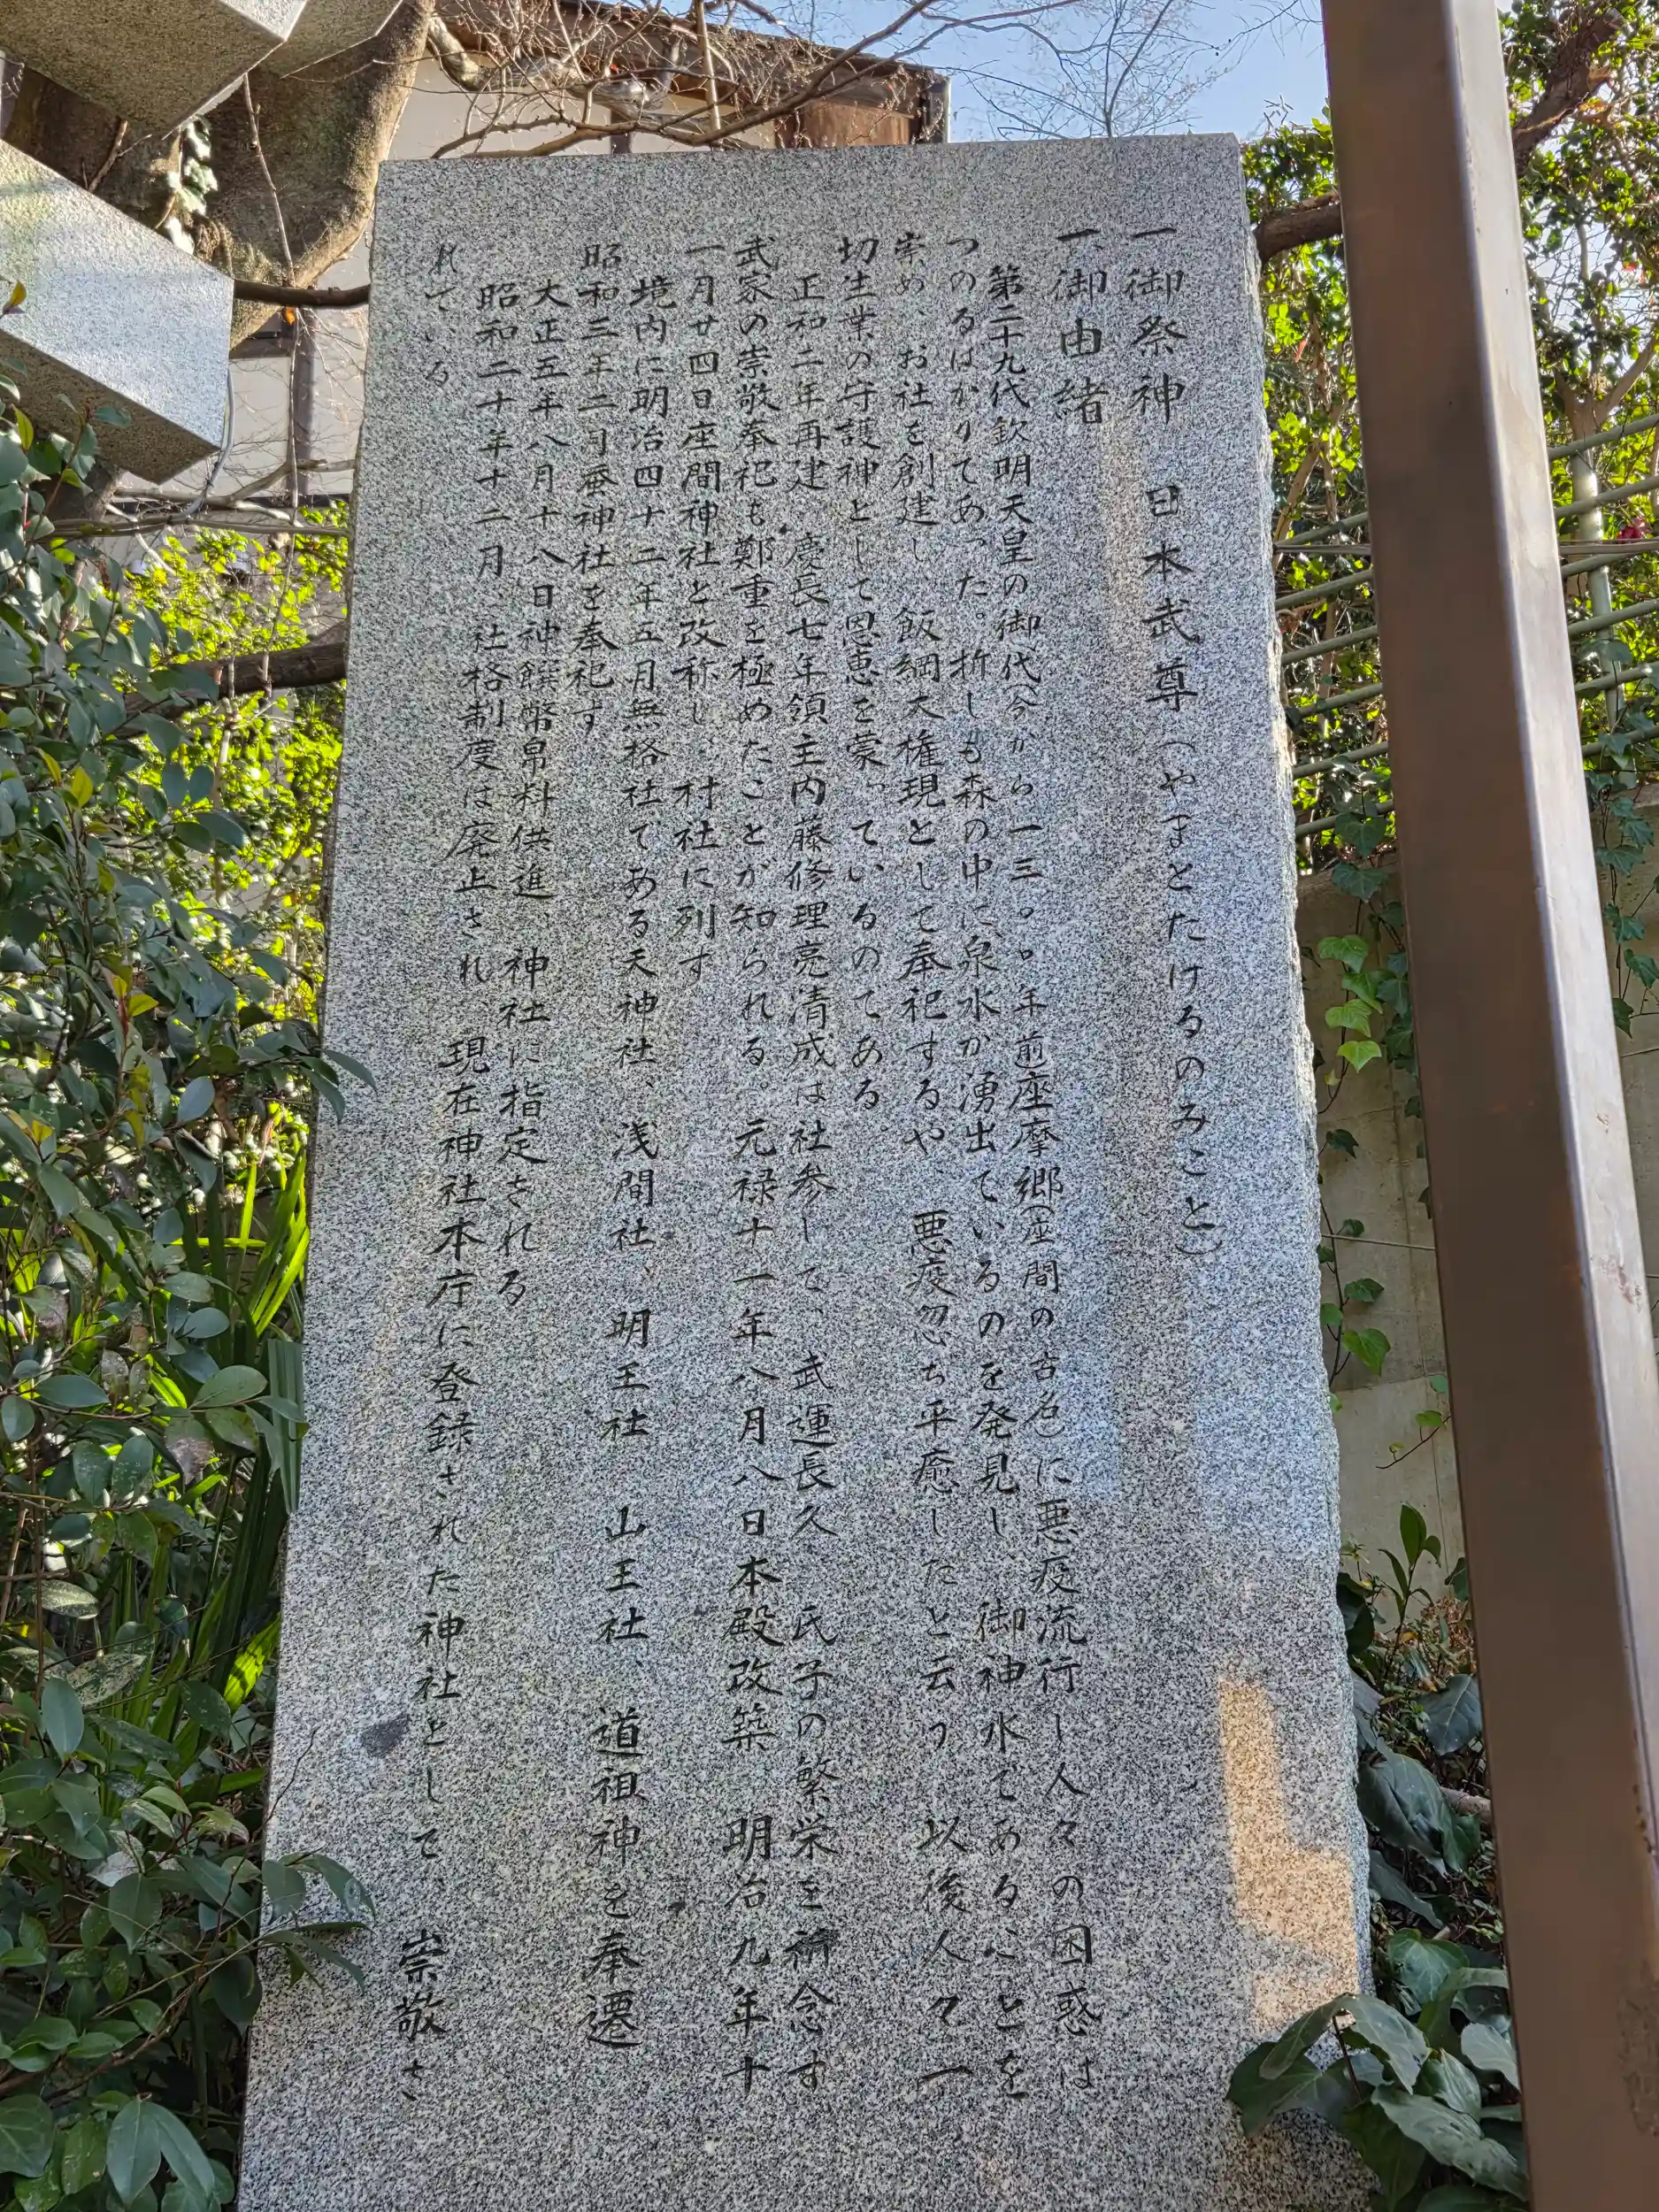 一、御祭神　日本武尊（やまとたけるのみこと）
一、御由緒
第二十九代欽明天皇の御代今から一三〇〇年前座摩郷（座間の古名）に悪疫流行し人々の困惑は
つのるばかりであった。折しも森の中に、泉水が湧出ているのを発見し、御神水であることを
崇め、お社を創建し、飯綱大権現として奉祀するや、悪疫忽ち平癒したと云う。以後人々一
切生業の守護神として恩恵を蒙っているのである。
正和二年再建、慶長七年領主内藤修理亮清成は社参して、武運長久、氏子の繁栄を祈念す
武家の崇敬奉祀も鄭重を極めたことが知られる。元禄十一年八月八日本殿改築、明治九年十
一月廿四日座間神社と改称し、村社に列す
境内に明治四十二年五月無格社である天神社、浅間社、明王社、山王社、道祖神を奉遷
昭和三年二月蚕神社を奉祀す
大正五年八月十八日神饌幣帛料供進、神社に指定される
昭和二十年十二月、社格制度は廃止され、現在神社本庁に登録された神社として、崇敬さ
れている